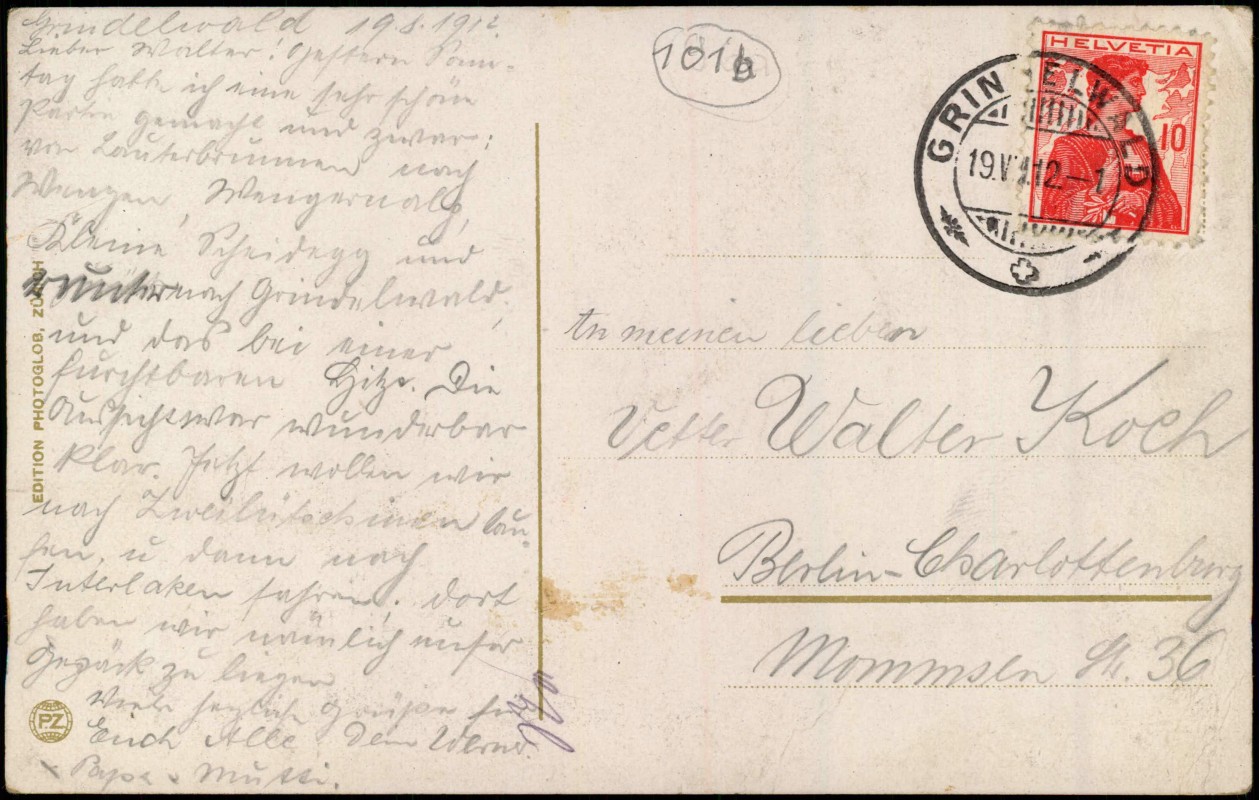 Grindelwald 19.8.1912.
Lieber Walter! Gestern Sonn-
tag habe ich eine sehr schöne
Partie gemacht und zwar:
von Lauterbrunnen nach
Wengen, Wengernalp,
Kleine Scheidegg und
runter nach Grindelwald,
und das bei einer
furchtbaren Hitze. Die
Aussicht war wunderbar
klar. Jetzt wollen wir
nach Zweilütschinen lau-
fen, u dann nach
Interlaken fahren, dort
haben wir nämlich unser
Gepäck zu liegen
Viele herzliche Grüße für
Euch Alle. Dein Werner
Papa Mutti.
EDITION PHOTOGLOB, ZÜRICH
PZ
101b
HELVETIA
10
GRINDELWALD
19.VIII.12.-1
An meinen lieben
Vetter Walter Koch
Berlin-Charlottenburg
Mommsen Str. 36